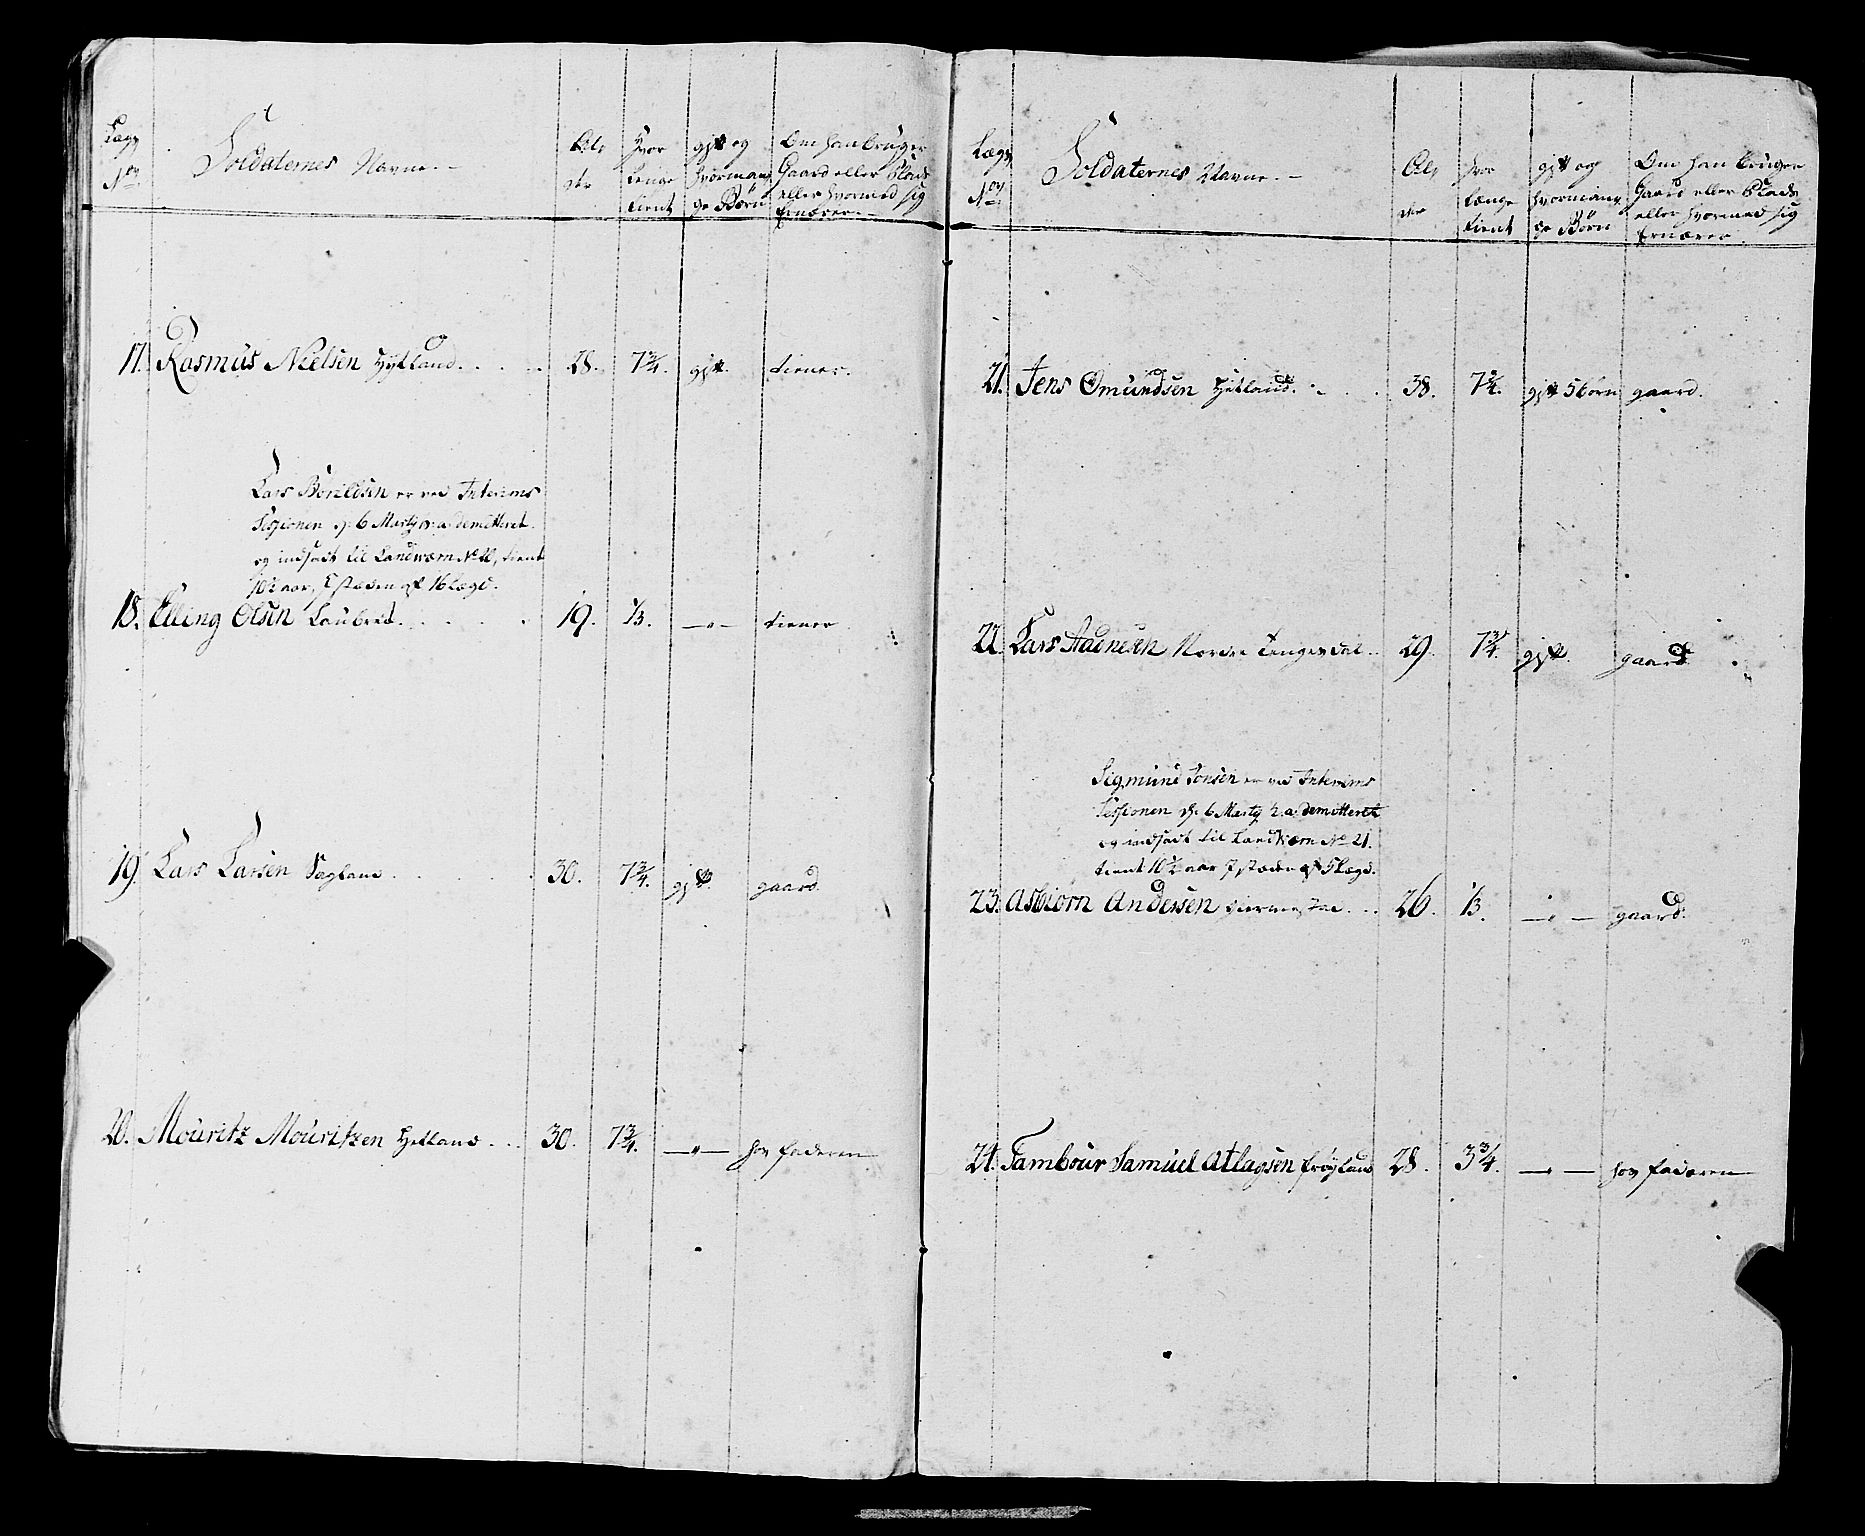 Lægs
No
Soldaternes Navne. –
Al,
der
Hvor
Længe
tient
gift og
hvorman,
ge Børn
Om han bruger
Gaard eller Plads
eller hvormed sig
Ernærer. –
17. Rasmus Nielsen Hytland. 28. 7 3/4. gift. tiener.
Lars Börildsen er ved Interims
Sessionen d: 6 Marty h: a: demitteret
og indsadt til Landværn No 20, tient
10 1/2 aar, I stæden af 16 Lægd.
18. Elling Olsen Laubrek. 19. 1/3. – " – tiener
19. Lars Larsen Sagland 30. 7 3/4. gift. gaard
20. Mouritz Mouritzen Hetland 30. 7 3/4. – " – hos faderen
Lægs
No
Soldaternes Navne. –
Al,
der
hvor
længe
tient
gift og
hvorman,
ge Børn
Om han bruger
Gaard eller Plads
eller hvormed sig
Ernærer.
21. Jens Omundsen Hetland. 38. 7 3/4. gift 5 börn gaard.
22. Lars Aadnesen Nordre Tengesdal 29. 7 3/4. gift. gaard
Sigmund Jonsen er ved Interims
Sessionen d: 6 Marty h: a: demitteret
og indsadt til Landværn No 21.
tient 10 1/2 aar I stæden af 5 Lægd.
23. Asbiörn Andersen 26. 1/3. – " – gaard.
24. Tambour Samuel Atlagsen fröyland 28. 3 3/4. – " – hos faderen